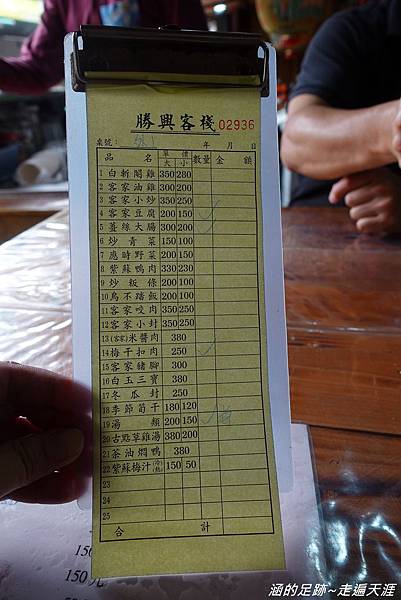 勝興客棧 02936
桌號： 年 月 日
品名 單價 大 小 數量 金額
1 白斬閹雞 350 280
2 客家油雞 300 200
3 客家小炒 350 250
4 客家豆腐 200 150 ✓
5 薑絲大腸 300 200
6 炒青菜 150 100
7 應時野菜 200 150
8 紫蘇鴨肉 330 230
9 炒粄條 200 100
10 鳥不踏飯 200 100
11 客家咬肉 350 250
12 客家小封 350 250
13 (客家)米醬肉 380
14 梅干扣肉 250 ✓
15 客家豬腳 300
16 白玉三寶 380
17 冬瓜封 250
18 季節筍干 180 120
19 湯類 200 150
20 古點草雞湯 380 200
21 茶油燜鴨 380
22 紫蘇梅汁(冷熱) 150 50
23
24
25
合計
150元
涵的足跡~走遍天涯